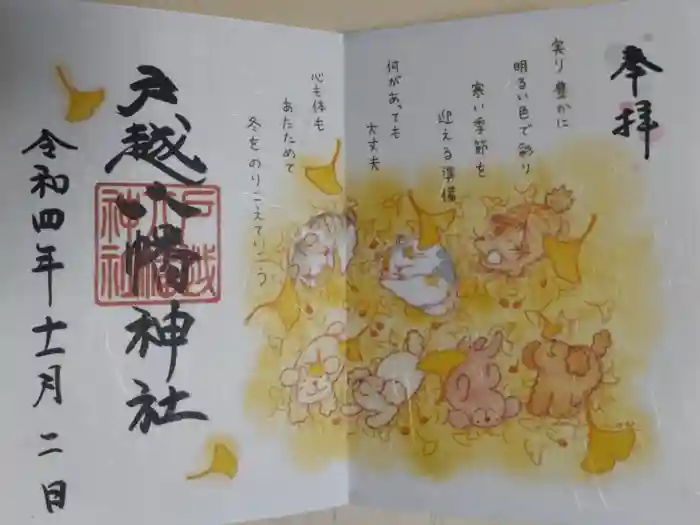 奉拝
実り豊かに
明るい色で彩り
寒い季節を
迎える準備
何があっても
大丈夫
心も体も
あたためて
冬をのりこえていこう
戸越八幡神社
戸越八幡神社
令和四年十一月二日